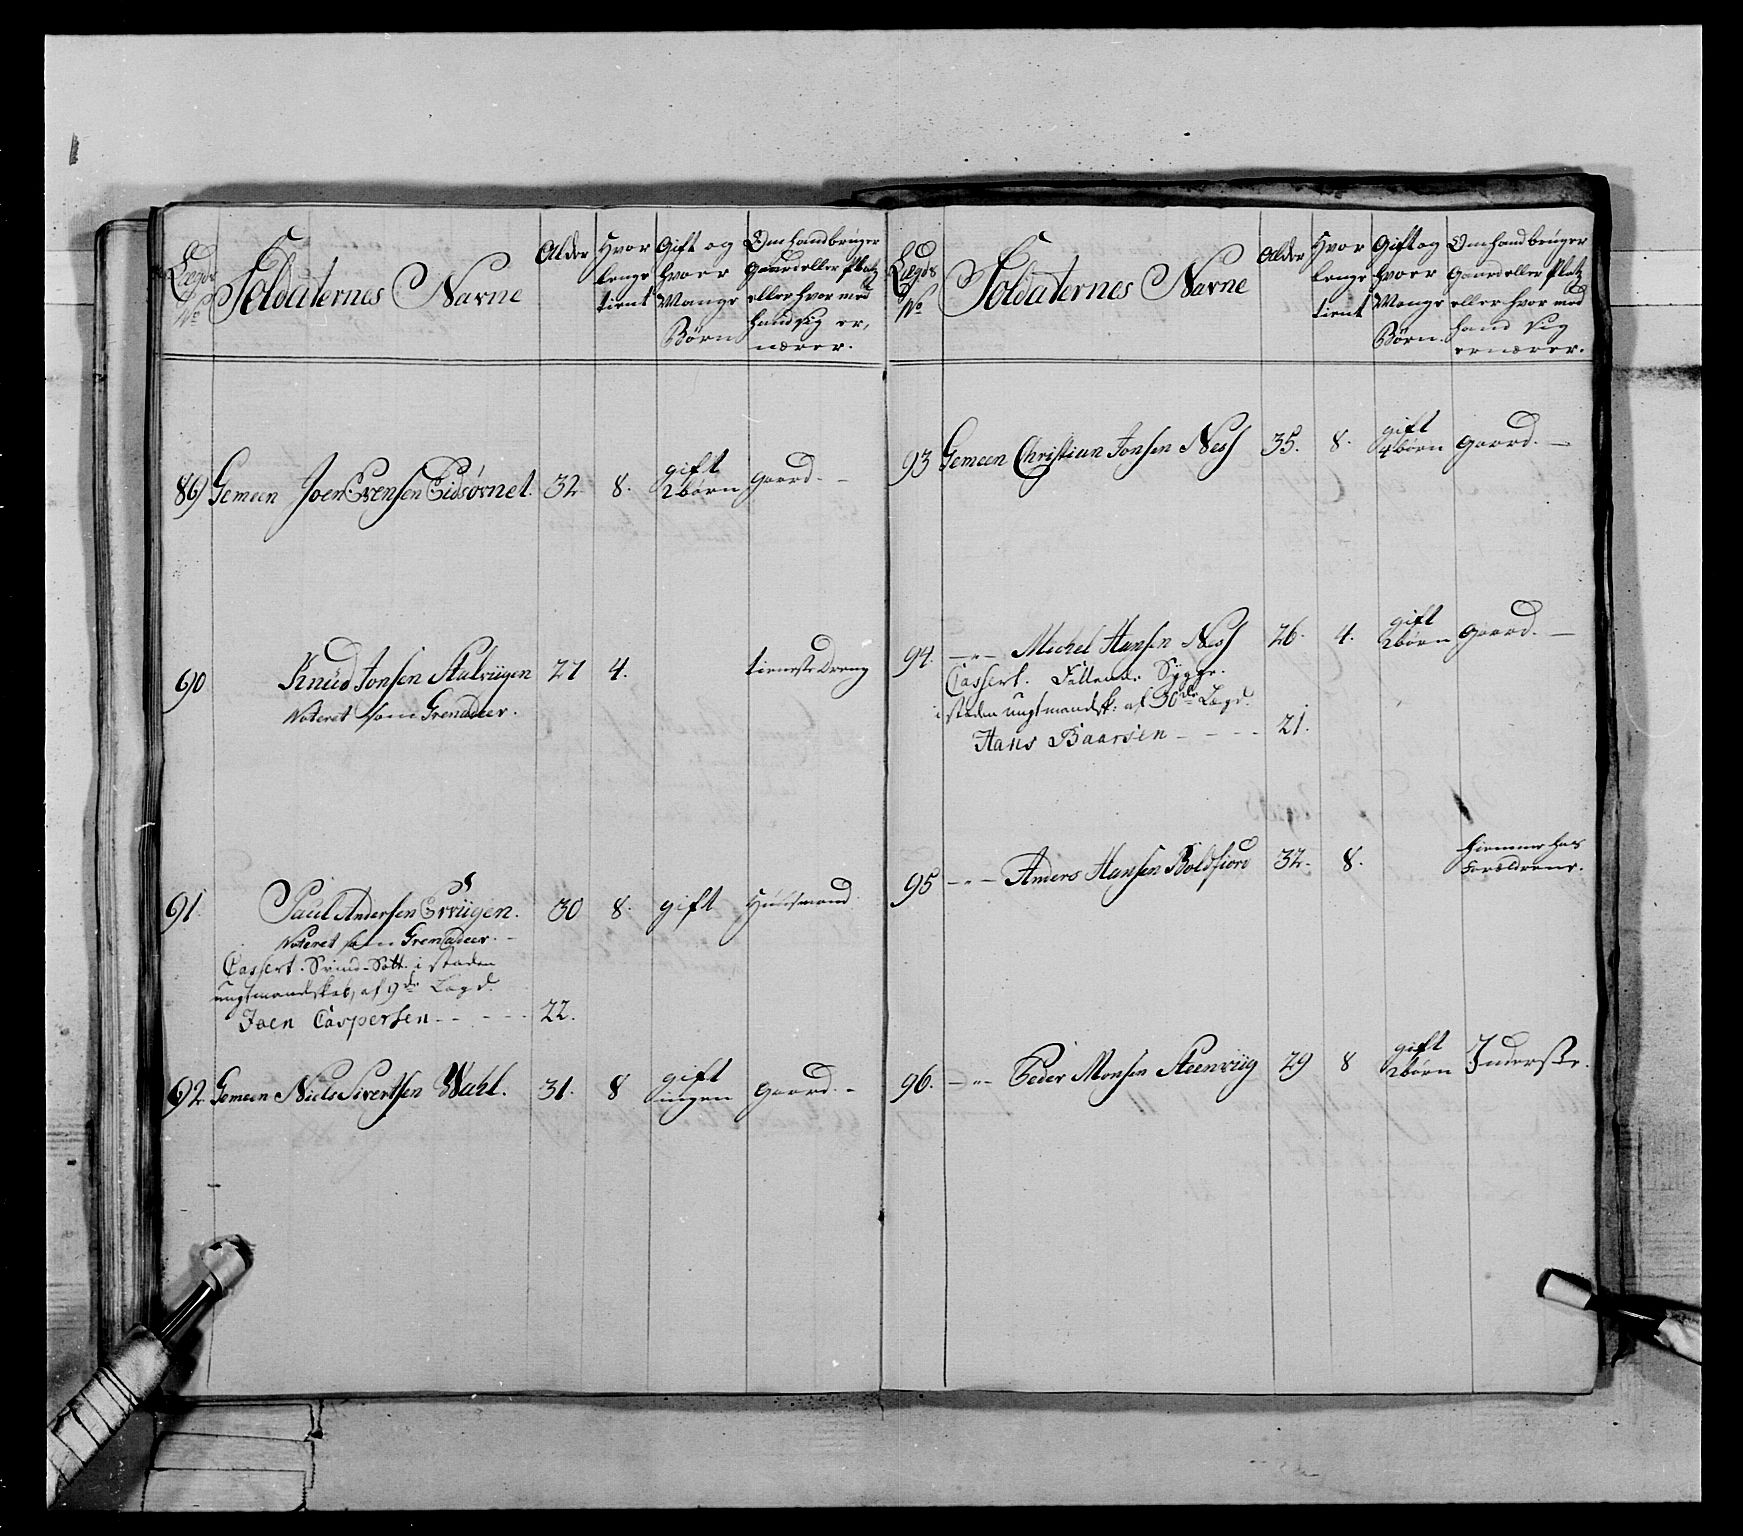 Lægds No
Soldaternes Navne
Alder
Hvor
lenge
tient
Gift og
hvor
Mange
Børn
Om hand bruger
Gaard eller Platz
eller hvor med
hand sig er,
nærer.
89 Gemeen Joen Evensen Eidsørnet. 32 8. gift
2 børn Gaard.
90 Knud Jonsen Stalviigen 27 4. tieneste Dreng
Noteret som Grenadeer.
91 Paul Andersen Ervigen. 30 8. gift Huusmand
Noteret som Grenadeer.
Cassert. Svind-Sott. i steden
ungtmandskab, af 9de Lægd.
Joen Caspersen - - - - - 22.
92. Gemeen Niels Sivertsen Wahl. 31. 8 gift
ingen Gaard. -
Lægds No
Soldaternes Navne
Alder
Hvor
lenge
tient
Gift og
hvor
Mange
Børn.
Om hand bruger
Gaard eller Platz
eller hvor med
hand sig
ernærer.
93 Gemeen Christian Jonsen Ness 35. 8. gift
4 børn Gaard. -
94. -"- Michel Hansen Ness 26. 4. gift
2 børn Gaard. -
Cassert. Fallende Syge.
i steden ungtmandsk: af 30de Lægd.
Hans Baarsen - - - - 21.
95 -"- Anders Hansen Boldfiord 32. 8. hiemme hos
Forældrene.
96. -"- Peder Monsen Steenviig 29 8 gift
2 børn Inderste.